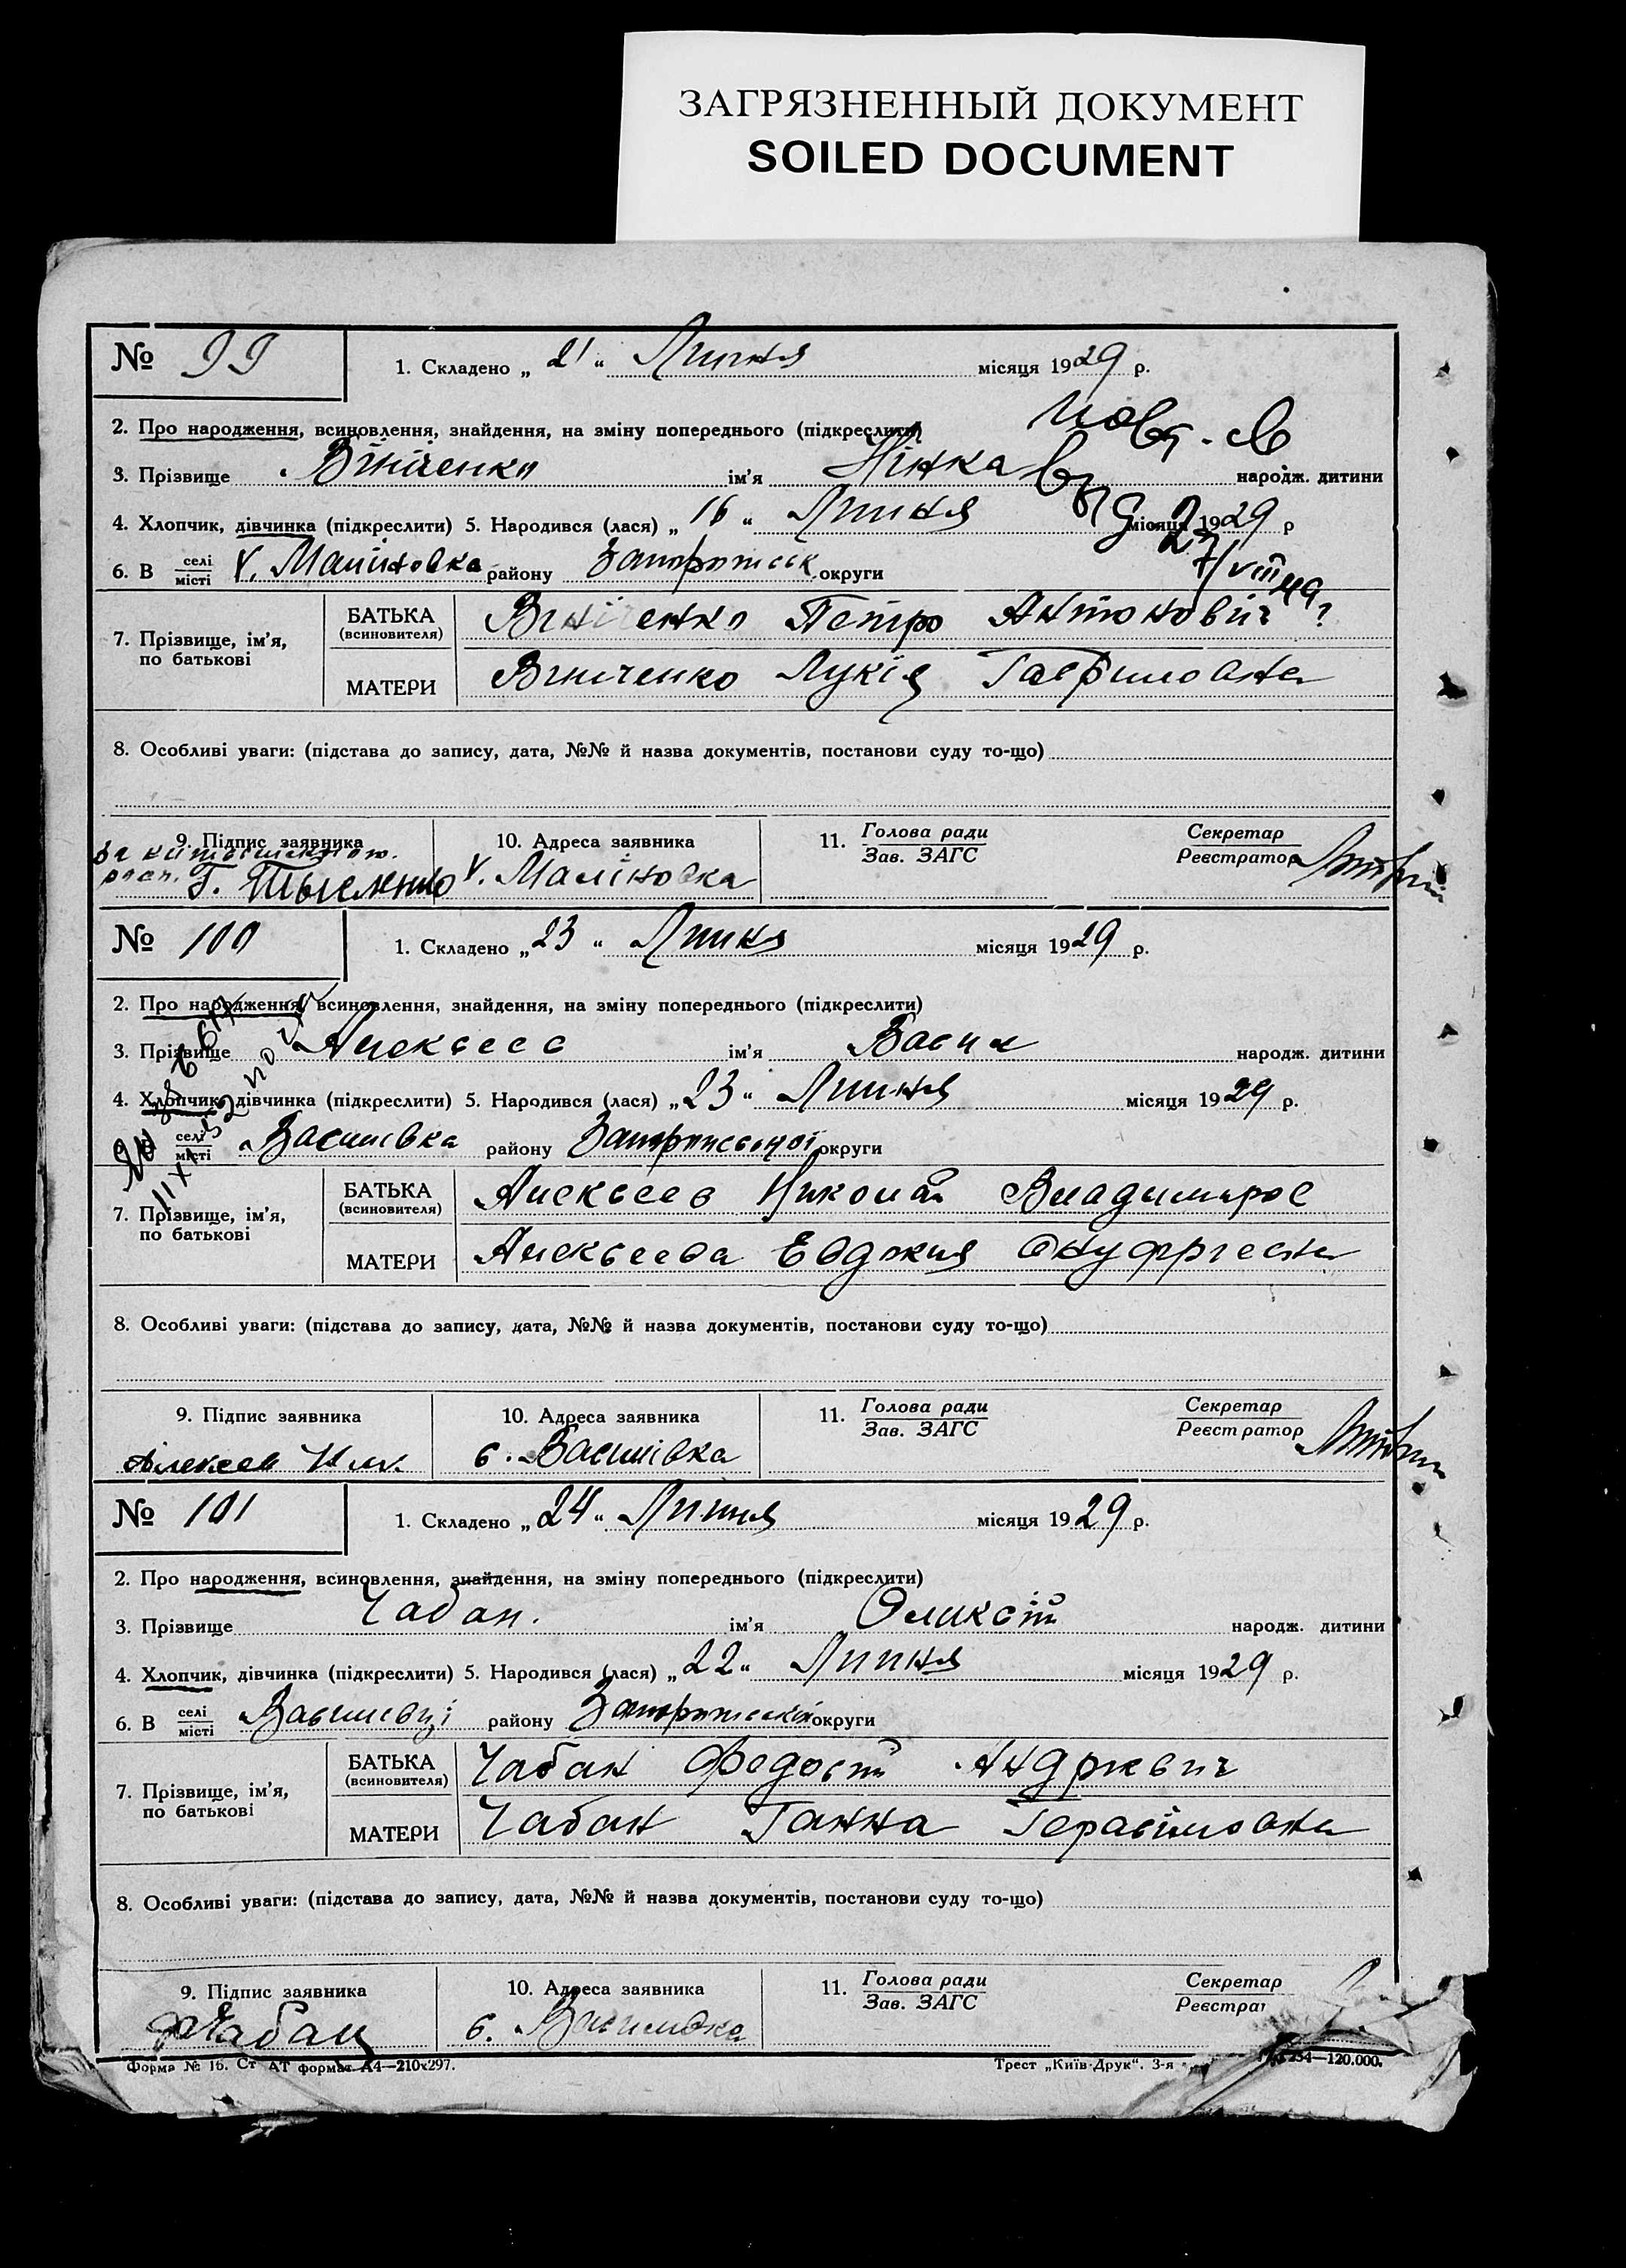 ЗАГРЯЗНЕННЫЙ ДОКУМЕНТ
SOILED DOCUMENT
№ 99 1. Складено „21“ Липня місяця 1929 р.
2. Про народження, всиновлення, знайдення, на зміну попереднього (підкреслити)
3. Прізвище Вініченко ім'я Нінка народж. дитини
4. Хлопчик, дівчинка (підкреслити) 5. Народився (лася) „16“ Липня місяця 1929 р
6. В селі місті х. Маліновка району Запоріжськ округи
27/VIII 49
7. Прізвище, ім'я, по батькові
БАТЬКА (всиновителя) Вініченко Петро Антоновіч
МАТЕРИ Вініченко Лукія Гавриловна
8. Особливі уваги: (підстава до запису, дата, №№ й назва документів, постанови суду то-що)
9. Підпис заявника 10. Адреса заявника 11. Голова ради Зав. ЗАГС Секретар Реєстратор
х. Маліновка
№ 100 1. Складено „23“ Липня місяця 1929 р.
2. Про народження, всиновлення, знайдення, на зміну попереднього (підкреслити)
3. Прізвище Алексеев ім'я Васил народж. дитини
4. Хлопчик, дівчинка (підкреслити) 5. Народився (лася) „23“ Липня місяця 1929 р.
селі місті Василівка району округи
7. Прізвище, ім'я, по батькові
БАТЬКА (всиновителя) Алексеев Николай Владимиров
МАТЕРИ Алексеева Евдокия Онуфриевна
8. Особливі уваги: (підстава до запису, дата, №№ й назва документів, постанови суду то-що)
9. Підпис заявника 10. Адреса заявника 11. Голова ради Зав. ЗАГС Секретар Реєстратор
Алексеев Ник. с. Василівка
№ 101 1. Складено „24“ Липня місяця 1929 р.
2. Про народження, всиновлення, знайдення, на зміну попереднього (підкреслити)
3. Прізвище Чабан. ім'я Оликсій народж. дитини
4. Хлопчик, дівчинка (підкреслити) 5. Народився (лася) „22“ Липня місяця 1929 р.
6. В селі місті Василівці району округи
7. Прізвище, ім'я, по батькові
БАТЬКА (всиновителя) Чабан Федосій Андрієвич
МАТЕРИ Чабан Ганна Герасімовна
8. Особливі уваги: (підстава до запису, дата, №№ й назва документів, постанови суду то-що)
9. Підпис заявника 10. Адреса заявника 11. Голова ради Зав. ЗАГС Секретар
Чабан с. Василівка
Форма № 16. Ст АТ формат А4—210x297. Трест „Київ-Друк“. 3-я —120.000.